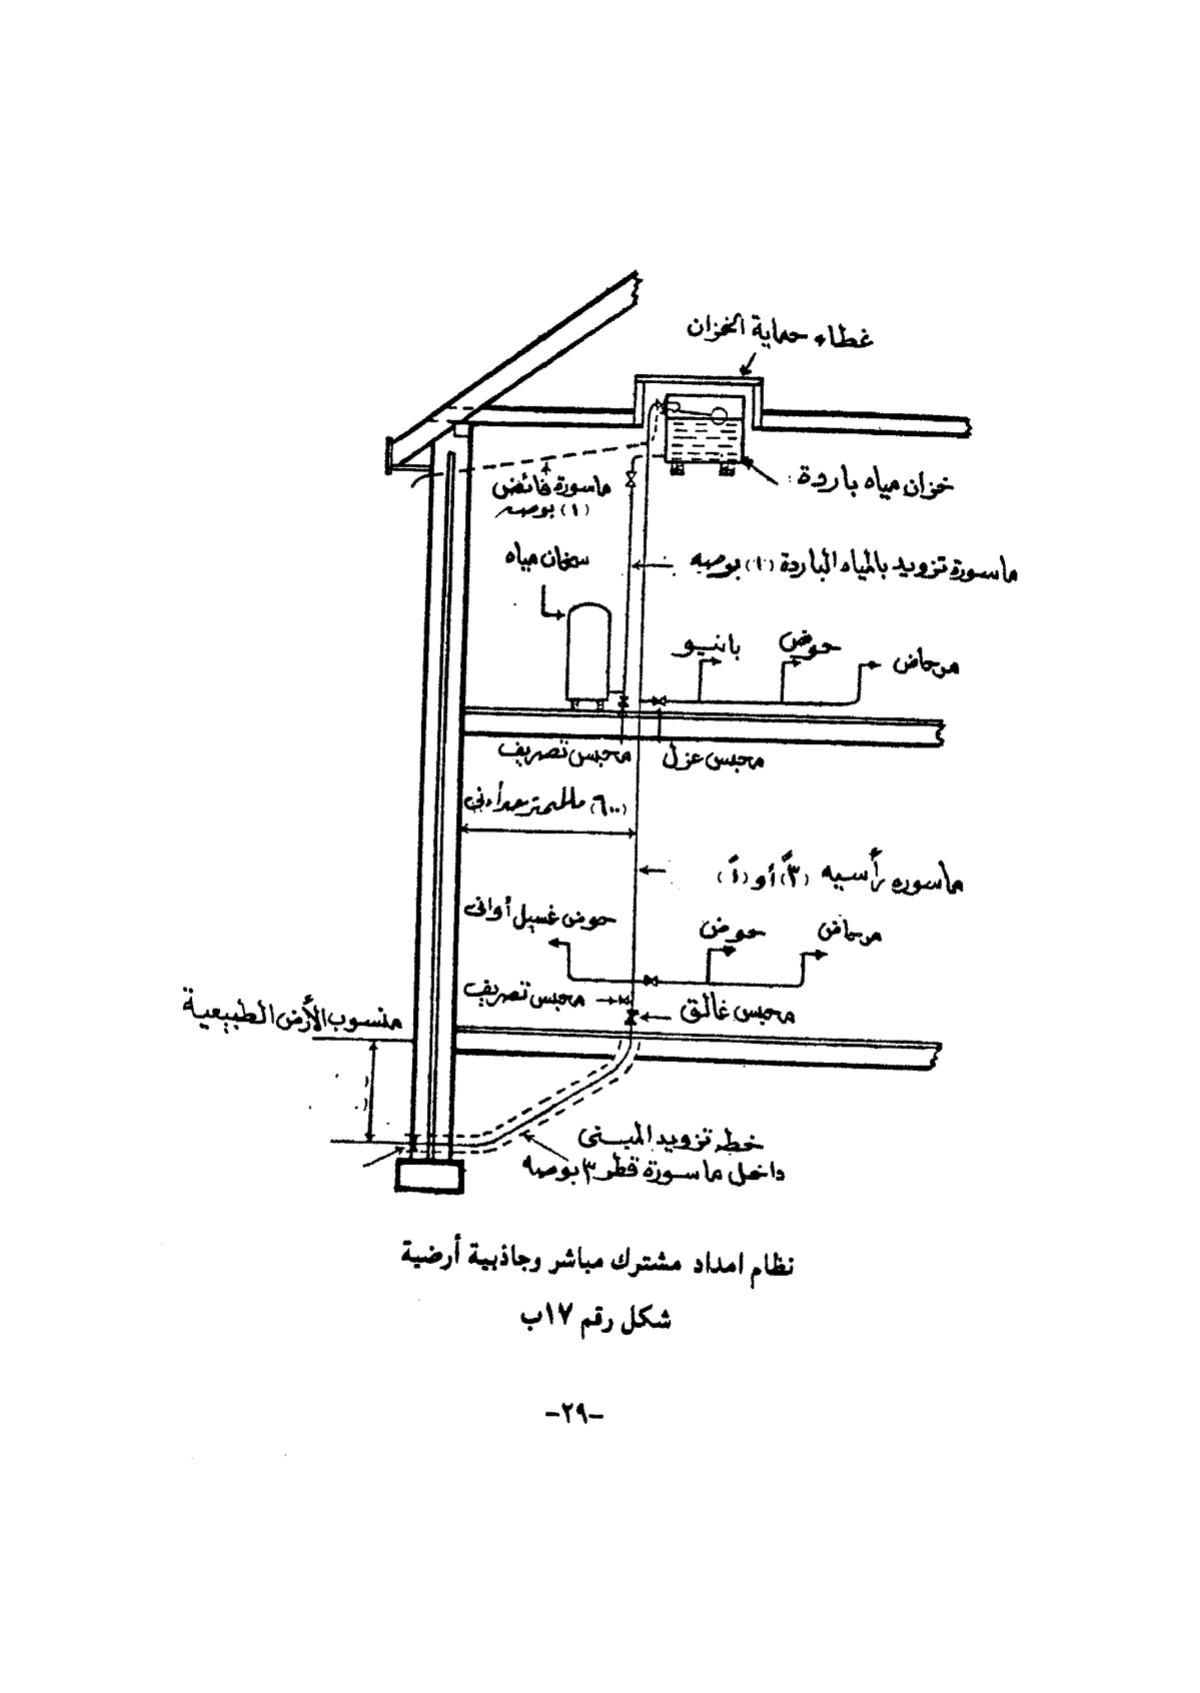 غطاء حماية الخزان
خزان مياه باردة
ماسورة فائض
(١) بوصه
سخان مياه
ماسورة تزويد بالمياه الباردة (١) بوصه
بانيو
حوض
مرحاض
محبس تصريف
محبس عزل
(٦٠٠) ملليمتر حد أدنى
ماسوره رأسيه (٣ً) أو (١ً)
حوض غسيل أوانى
حوض
مرحاض
محبس تصريف
محبس غالق
منسوب الأرض الطبيعية
خط تزويد المبنى
داخل ماسورة قطر ٣ بوصه
نظام امداد مشترك مباشر وجاذبية أرضية
شكل رقم ١٧ب
-٢٩-